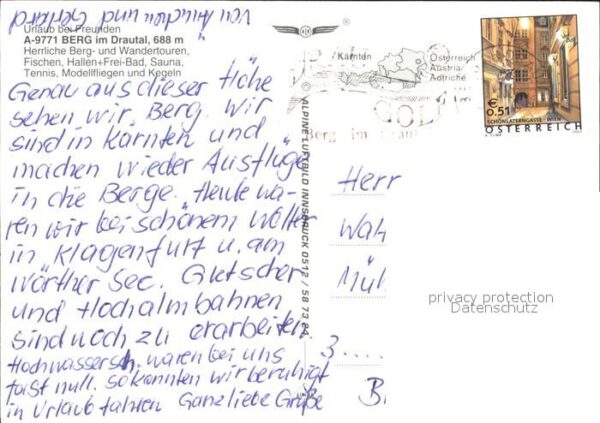 Urlaub bei Freunden
A-9771 BERG im Drautal, 688 m
Herrliche Berg- und Wandertouren,
Fischen, Hallen+Frei-Bad, Sauna,
Tennis, Modellfliegen und Kegeln
Genau aus dieser Höhe
sehen wir "Berg". Wir
sind in Kärnten und
machen wieder Ausflüge
in die Berge. Heute wa-
ren wir bei schönem Wetter
in Klagenfurt u. am
Wörther See. Gletscher
und Hochalmbahnen
sind noch zu erarbeiten.
Hochwassersch. waren bei uns
fast null. so konnten wir beruhigt
in Urlaub fahren Ganz liebe Grüße
von und Gerhard
© ALPINE LUFTBILD INNSBRUCK 0512 / 58 73 84
Kärnten
Österreich
Austria
Autriche
GOLD
Berg im Drautal
€ 0,51
SCHÖNLATERNGASSE, WIEN
ÖSTERREICH
Herr
Wal
Mül
3
B
privacy protection
Datenschutz